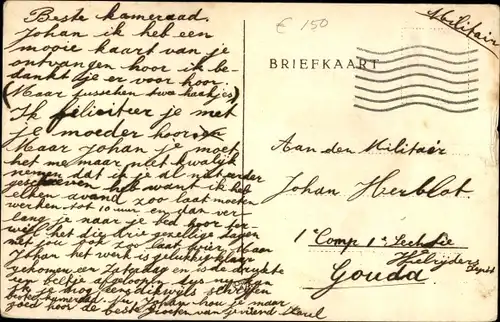 Beste kameraad.
Johan ik heb een
mooie kaart van je
ontvangen hoor ik be-
dankt je er voor hoor.
(Maar tusschen twee haakjes)
Ik feliciteer je met
je moeder hoor en
Maar Johan je moet
het me maar niet kwalijk
nemen dat ik je al niet eerder
geschreven heb want ik heb
elken avond zoo laat moeten
werken tot 10 uur en dan ver-
lang je naar je bed hoor
met jou ook zoo laat hoor, Maar
Johan het werk is gelukkig klaar
gekomen Zaterdag en is de drukte
een beetje afgeloopen dus nu kan
ik je nog eens dikwels schrijven
beste kameraad. Nu, Johan hou je maar
goed hoor de beste groeten van je vriend Karel
€ 150
Militair
BRIEFKAART
Aan den Militair
Johan Herblot.
1e Comp 1e Sectie
Hielrijders
Gouda